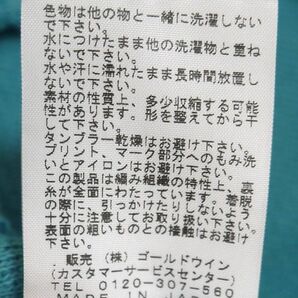 色物は他の物と一緒に洗濯しない
で下さい。
水につけたまま他の洗濯物と重ね
ないで下さい。
水や汗に濡れたまま長時間放置し
ないで下さい。
素材の性質上、多少収縮する可能
性があります。形を整えてから干
して下さい。
タンブラー乾燥はお避け下さい。
プリント、マーク部分へのもみ洗
いとアイロンはお避け下さい。
この製品は編み組織の特性上、裏
糸が全面にわたっています。着脱
の際に、引っかけたりしないよう
十分に注意してお取り扱い下さい。
表面の粗いものとの接触はお避け
下さい。
販売 (株) ゴールドウイン
(カスタマーサービスセンター)
TEL 0120-307-560
MADE IN JAPAN